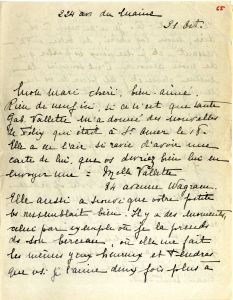 65
224 av. du Maine
31 Oct.
Mon mari chéri, bien-aimé,
Rien de neuf ici, si ce n'est que tante
Gab. Vallette m'a donné des nouvelles
de qui était à St Omer le 18.
Elle a l'air si ravie d'avoir une
carte de lui, que vs devriez bien lui en
envoyer une = Melle Vallette
84 avenue Wagram.
Elle aussi a trouvé que votre petite
vs ressemblait bien. Il y a des moments,
celui par exemple où je la prends
ds son berceau, où elle me fait
les mêmes yeux heureux et tendres
que vs. Je t'aime deux fois plus à